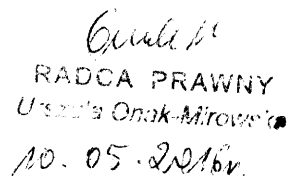 RADCA PRAWNY
Urszula Onak-Mirowska
10. 05. 2016r.